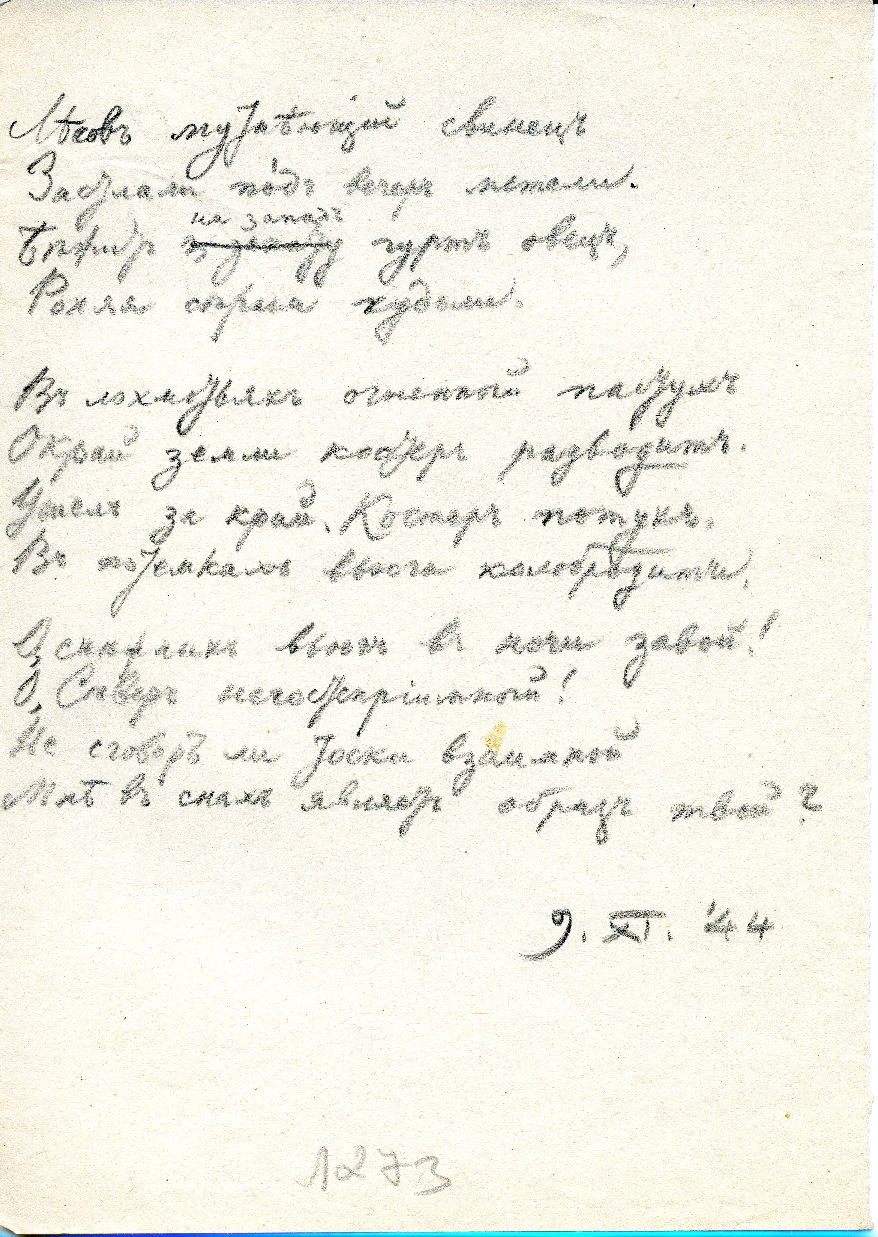 Лѣсовъ мутнѣющій свинецъ
Застлали по́дъ вечеръ метели.
на западъ
гуртъ овецъ,
Роняя с кудели.
Въ лохмотьяхъ огненный пастухъ
Окрай земли костеръ разводитъ.
Ушелъ за край. Костеръ потухъ.
Въ потемкахъ вьюга колобродитъ.
О, вьюгъ въ ночи завой!
О, Сѣверъ негостепріимный!
Не сговоръ ли тоски взаимной
Мнѣ въ снахъ являетъ образъ твой?
9. XI. '44
1273